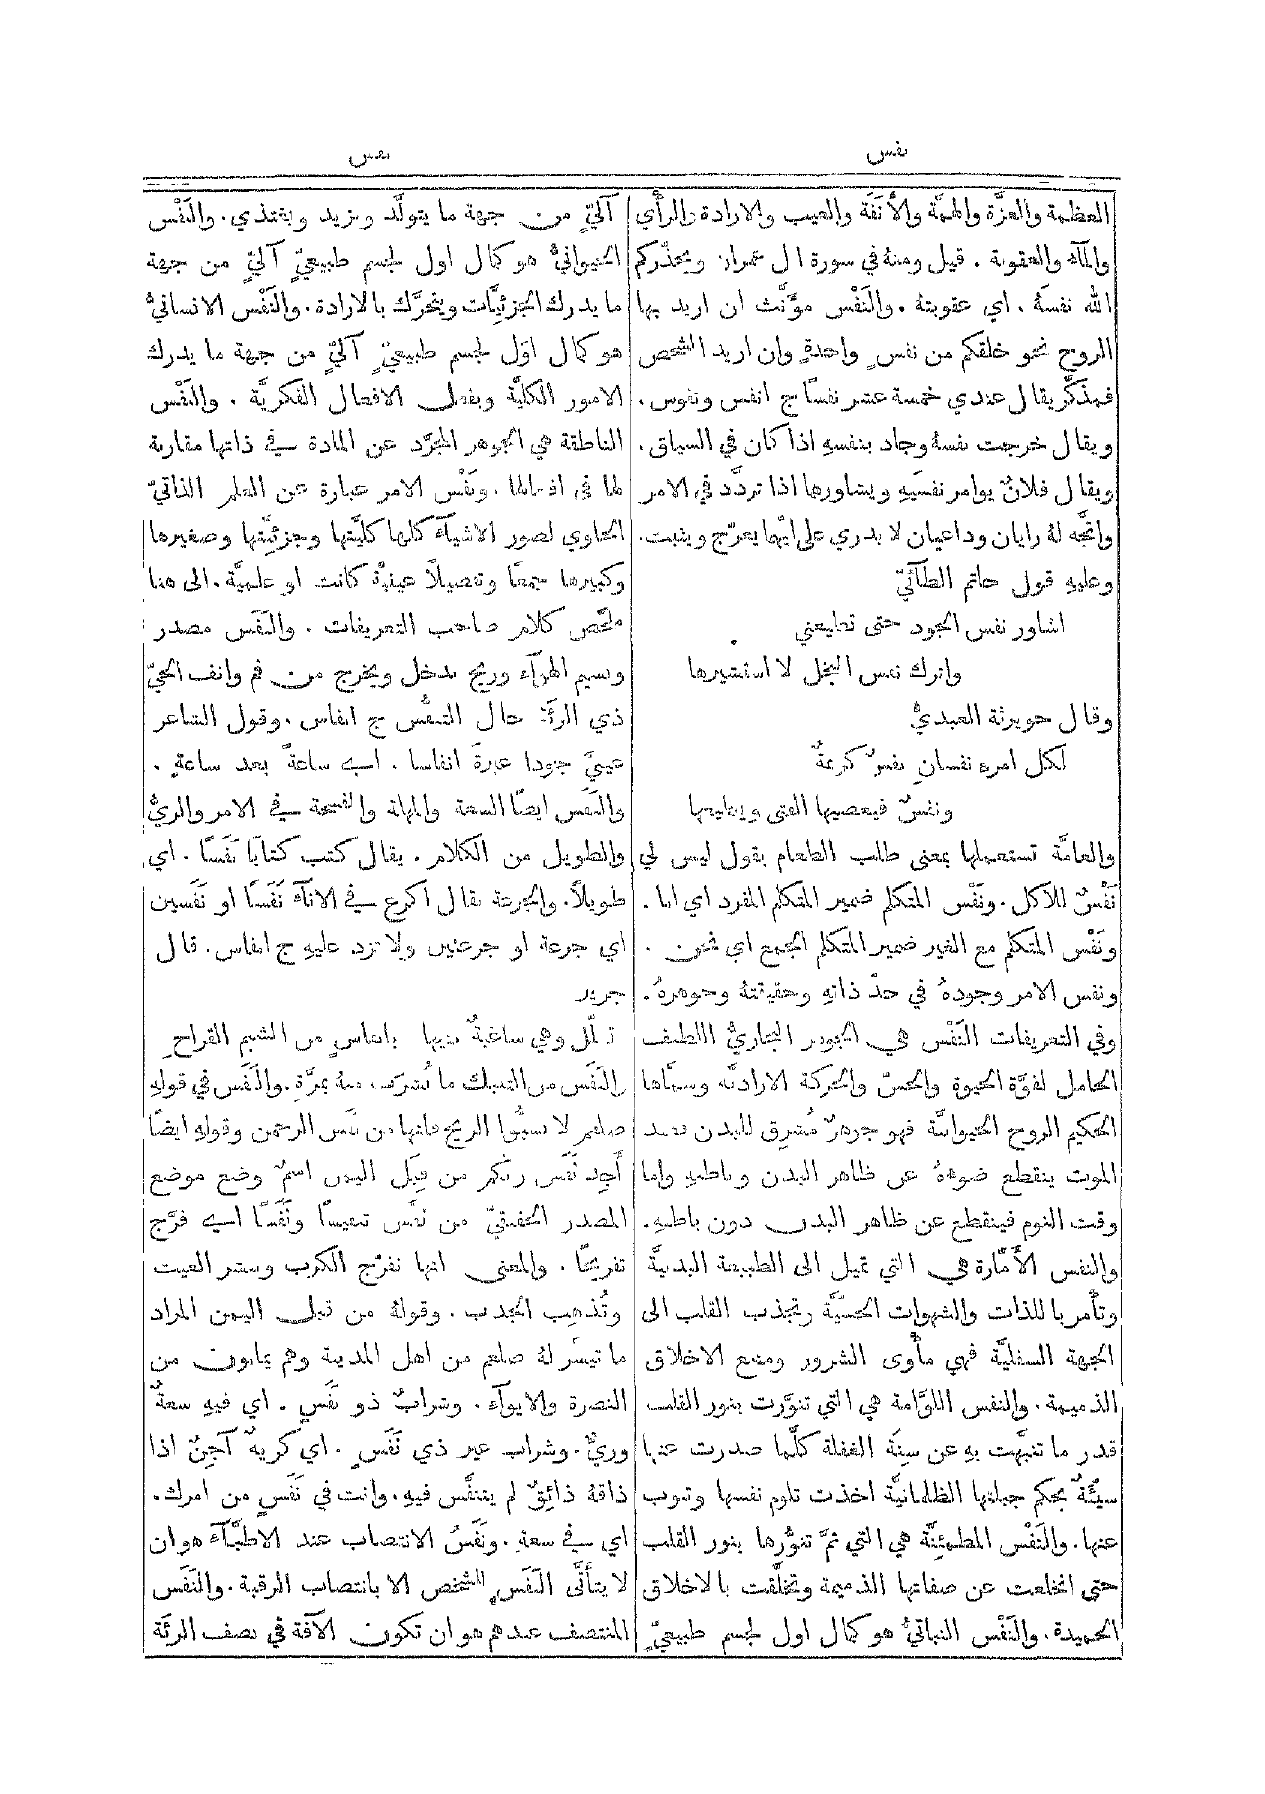 نفس
نفس
العظمة والعزَّة والهمَّة والأَنَفَة والعيب والارادة والرأْي
والمآء والعقوبة . قيل ومنهُ في سورة ال عمران ويحذّركم
الله نفسَهُ . اي عقوبتهُ . والنَفْس مؤنَّث ان اريد بها
الروح نحو خلقكم من نفسٍ واحدةٍ وان اريد الشخص
فمذكَّر يقال عندي خمسة عشر نفسًا ج انفس ونفوس .
ويقال خرجت نفسهُ وجاد بنفسهِ اذا كان في السياق .
ويقال فلانٌ يوامر نفسَيهِ ويشاورها اذا تردَّد في الامر
واتَّجه لهُ رايان وداعيان لا يدري على ايّهما يعرّج ويثبت .
وعليهِ قول حاتم الطآئيّ
اشاور نفس الجود حتى تطيعني
واترك نفس البخل لا استشيرها
وقال حويرثة العبديُّ
لكل امرءٍ نفسانِ نفسٌ كريمةٌ
ونفسٌ فيعصيها الفتى ويطيعها
والعامَّة تستعملها بمعنى طلب الطعام يقول ليس لي
نَفْسٌ للأكل . ونَفْس المتكلم ضمير المتكلم المفرد اي انا .
ونَفْس المتكلم مع الغير ضمير المتكلم الجمع اي نحن .
ونفس الامر وجودهُ في حدّ ذاتهِ وحقيقتهُ وجوهرهُ .
وفي التعريفات النَفْس هي الجوهر البخاريُّ اللطيف
الحامل لقوَّة الحيوة والحسّ والحركة الارادية وسمَّاها
الحكيم الروح الحيوانيَّة فهو جوهرٌ مُشرِق للبدن فعند
الموت ينقطع ضوءهُ عن ظاهر البدن وباطنهِ واما
وقت النوم فينقطع عن ظاهر البدن دون باطنهِ .
والنفس الأَمَّارة هي التي تميل الى الطبيعة البدنيَّة
وتأْمر باللذات والشهوات الحسيَّة وتجذب القلب الى
الجهة السفليَّة فهي مأْوى الشرور ومنبع الاخلاق
الذميمة . والنفس اللوَّامة هي التي تنوَّرت بنور القلب
قدر ما تنبَّهت بهِ عن سِنَة الغفلة كلَّما صدرت عنها
سيئةٌ بحكم جبلتها الظلمانيَّة اخذت تلوم نفسها وتتوب
عنها . والنَفْس المطمئنَّة هي التي تمَّ تنوُّرها بنور القلب
حتى انخلعت عن صفاتها الذميمة وتخلَّقت بالاخلاق
الحميدة . والنَفْس النباتيُّ هو كمال اول لجسم طبيعيٍّ
آليٍّ من جهة ما يتولَّد ويزيد ويغتذي . والنَفْس
الحيوانيُّ هو كمال اول لجسم طبيعيٍّ آليٍّ من جهة
ما يدرك الجزئيَّات ويتحرَّك بالارادة . والنَفْس الانسانيُّ
هو كمال اوّل لجسم طبيعيٍّ آليٍّ من جهة ما يدرك
الامور الكليَّة ويفعل الافعال الفكريَّة . والنَفْس
الناطقة هي الجوهر المجرَّد عن المادة في ذاتها مقارنة
لها في افعالها . ونَفْس الامر عبارة عن العلم الذاتيّ
الحاوي لصور الاشيآء كلها كليَّتها وجزئيَّتها وصغيرها
وكبيرها جمعًا وتفصيلاً عينيَّةً كانت او علميَّة . الى هنا
ملخَّص كلام صاحب التعريفات . والنَفَس مصدر
ونسيم الهوآء وريح يدخل ويخرج من فم وانف الحيّ
ذي الرئة حال التنفُّس ج انفاس . وقول الشاعر
عينيَّ جودا عبرةً انفاسا . اي ساعةً بعد ساعةٍ .
والنَفَس ايضًا السعة والمهلة والفسحة في الامر والريُّ
والطويل من الكلام . يقال كتب كتابًا نَفَسًا . اي
طويلاً . والجرعة يقال أكرع في الانآء نَفَسًا او نَفَسين
اي جرعة او جرعتين ولا تزد عليهِ ج انفاس . قال
جرير
تعلّل وهي ساغبةٌ بنيها بانفاسٍ من الشبم القراحِ
والنَفَس في قولهِ
صلعم لا تسبُّوا الريح فانها من نَفَس الرحمن وقولهِ ايضًا
أَجِد نَفَس ربّكم من قِبَل اليمن اسمٌ وضع موضع
المصدر الحقيقيّ من نفَّس تنفيسًا ونَفَسًا اي فرَّج
تفريجًا . والمعنى انها تفرّج الكرب وتنشر الغيث
وتُذهِب الجدب . وقولهُ من قبل اليمن المراد
ما تيسَّر لهُ صلعم من اهل المدينة وهم يمانون من
النصرة والايوآء . وشرابٌ ذو نَفَسٍ . اي فيهِ سعةٌ
وريٌّ . وشراب غير ذي نَفَسٍ . اي كريهٌ آجِنٌ اذا
ذاقهُ ذائقٌ لم يتنفَّس فيهِ . وانت في نَفَسٍ من امرك .
اي في سعةٍ . ونَفَسُ الانتصاب عند الاطبَّآء هو ان
لا يتأتَّى النَفَس للشخص الا بانتصاب الرقبة . والنَفَس
المنتصف عندهم هو ان تكون الآفة في نصف الرئة